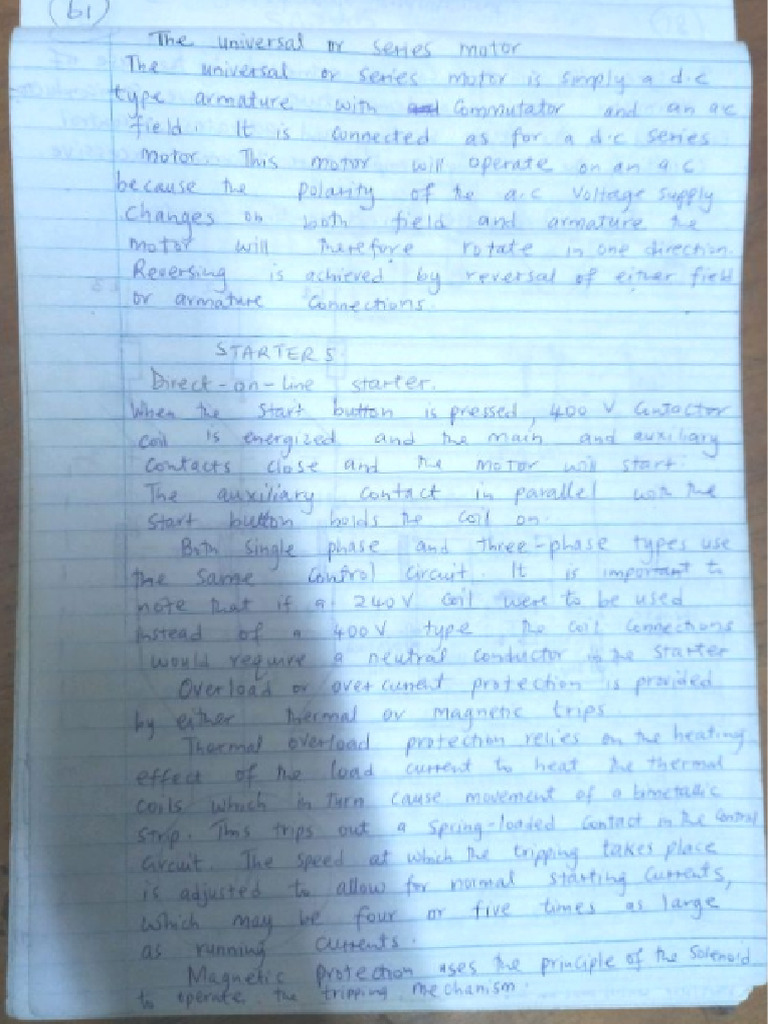 (61)
The universal or series motor
The universal or series motor is simply a d.c
type armature with commutator and an ac
field It is connected as for a d.c series
motor. This motor will operate on an a.c
because the polarity of the a.c voltage supply
changes on both field and armature the
motor will therefore rotate in one direction.
Reversing is achieved by reversal of either field
or armature connections.
STARTERS
Direct-on-line starter.
When the start button is pressed, 400 V contactor
coil is energized and the main and auxiliary
contacts close and the motor will start.
The auxiliary contact in parallel with the
start button holds the coil on.
Both single phase and three-phase types use
the same control circuit. It is important to
note that if a 240V coil were to be used
instead of a 400V type the coil connections
would require a neutral conductor in the starter
Overload or over current protection is provided
by either thermal or magnetic trips
Thermal overload protection relies on the heating
effect of the load current to heat the thermal
coils which in turn cause movement of a bimetallic
strip. This trips out a spring-loaded contact in the control
circuit. The speed at which the tripping takes place
is adjusted to allow for normal starting currents,
which may be four or five times as large
as running currents.
Magnetic protection uses the principle of the solenoid
to operate the tripping mechanism.